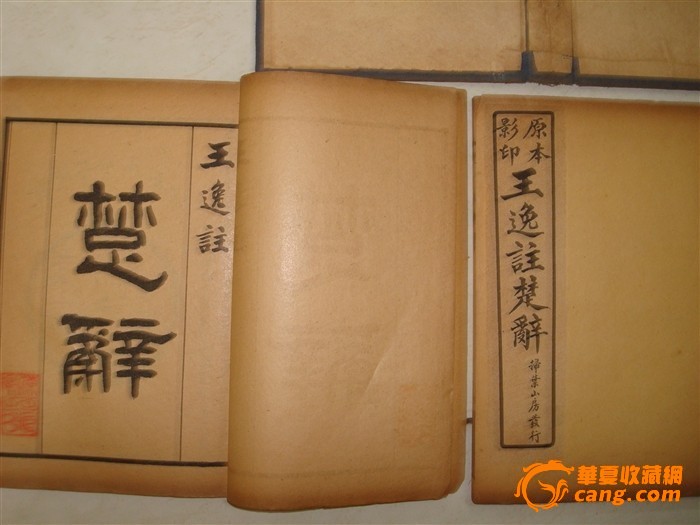 王逸註
楚辭
原本
影印
王逸註楚辭
掃葉山房發行
華夏收藏網
cang.com